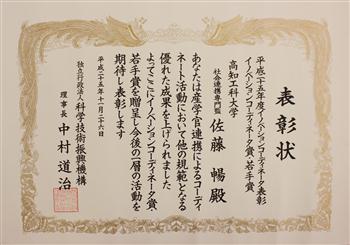 表彰状
平成二十五年度イノベーションコーディネータ表彰
イノベーションコーディネータ賞・若手賞
高知工科大学
社会連携専門監
佐藤 暢 殿
あなたは産学官連携によるコーディ
ネート活動において他の規範となる
優れた成果を上げられました
よってここにイノベーションコーディネータ賞・
若手賞を贈呈し今後の一層の活動を
期待し表彰します
平成二十五年十一月二十六日
独立行政法人 科学技術振興機構
理事長 中村道治